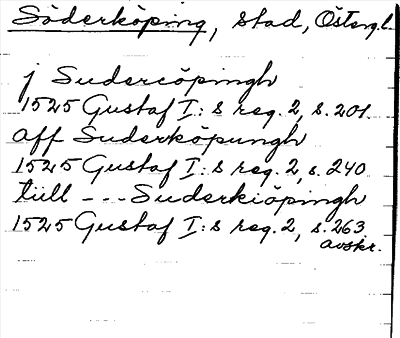 Söderköping, stad, Östergl.
j Sudercöpingh
1525 Gustaf I:s reg. 2, s. 201.
aff Suderköpungh
1525 Gustaf I:s reg. 2, s. 240
tüll --- Suderkiöpingh
1525 Gustaf I:s reg. 2, s. 263
avskr.